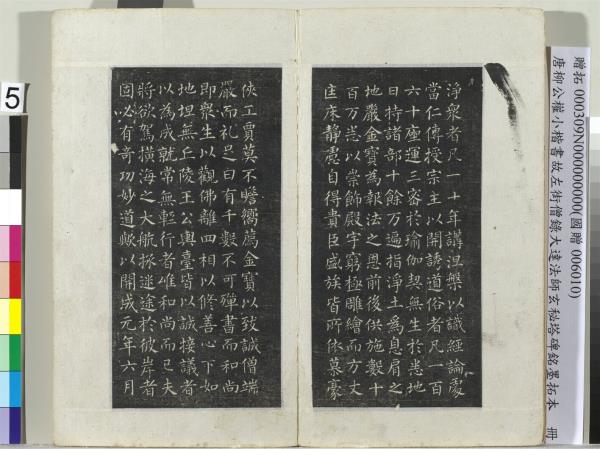 贈拓 000309N000000000(國贈 006010)
唐柳公權小楷書故左街僧錄大達法師玄秘塔碑銘墨拓本 冊
淨衆者凡一十年講涅槃以識經論處
當仁傳授宗主以開誘道俗者凡一百
六十座運三容於瑜伽契無生於悉地
日持諸部十餘万遍指淨土為息肩之
地嚴金寶為報法之恩前後供施數十
百万悉以崇飾殿宇窮極雕繪而方丈
匡床靜慮自得貴臣盛族皆所依慕豪
俠工賈莫不瞻嚮薦金寶以致誠僧端
嚴而礼足日有千數不可殫書而和尚
即衆生以觀佛離四相以修善心下如
地坦無丘陵王公輿臺皆以誠接議者
以為成就常無輕行者唯和尚而已夫
將欲駕橫海之大航拯迷途於彼岸者
固必有奇功妙道歟以開成元年六月
5